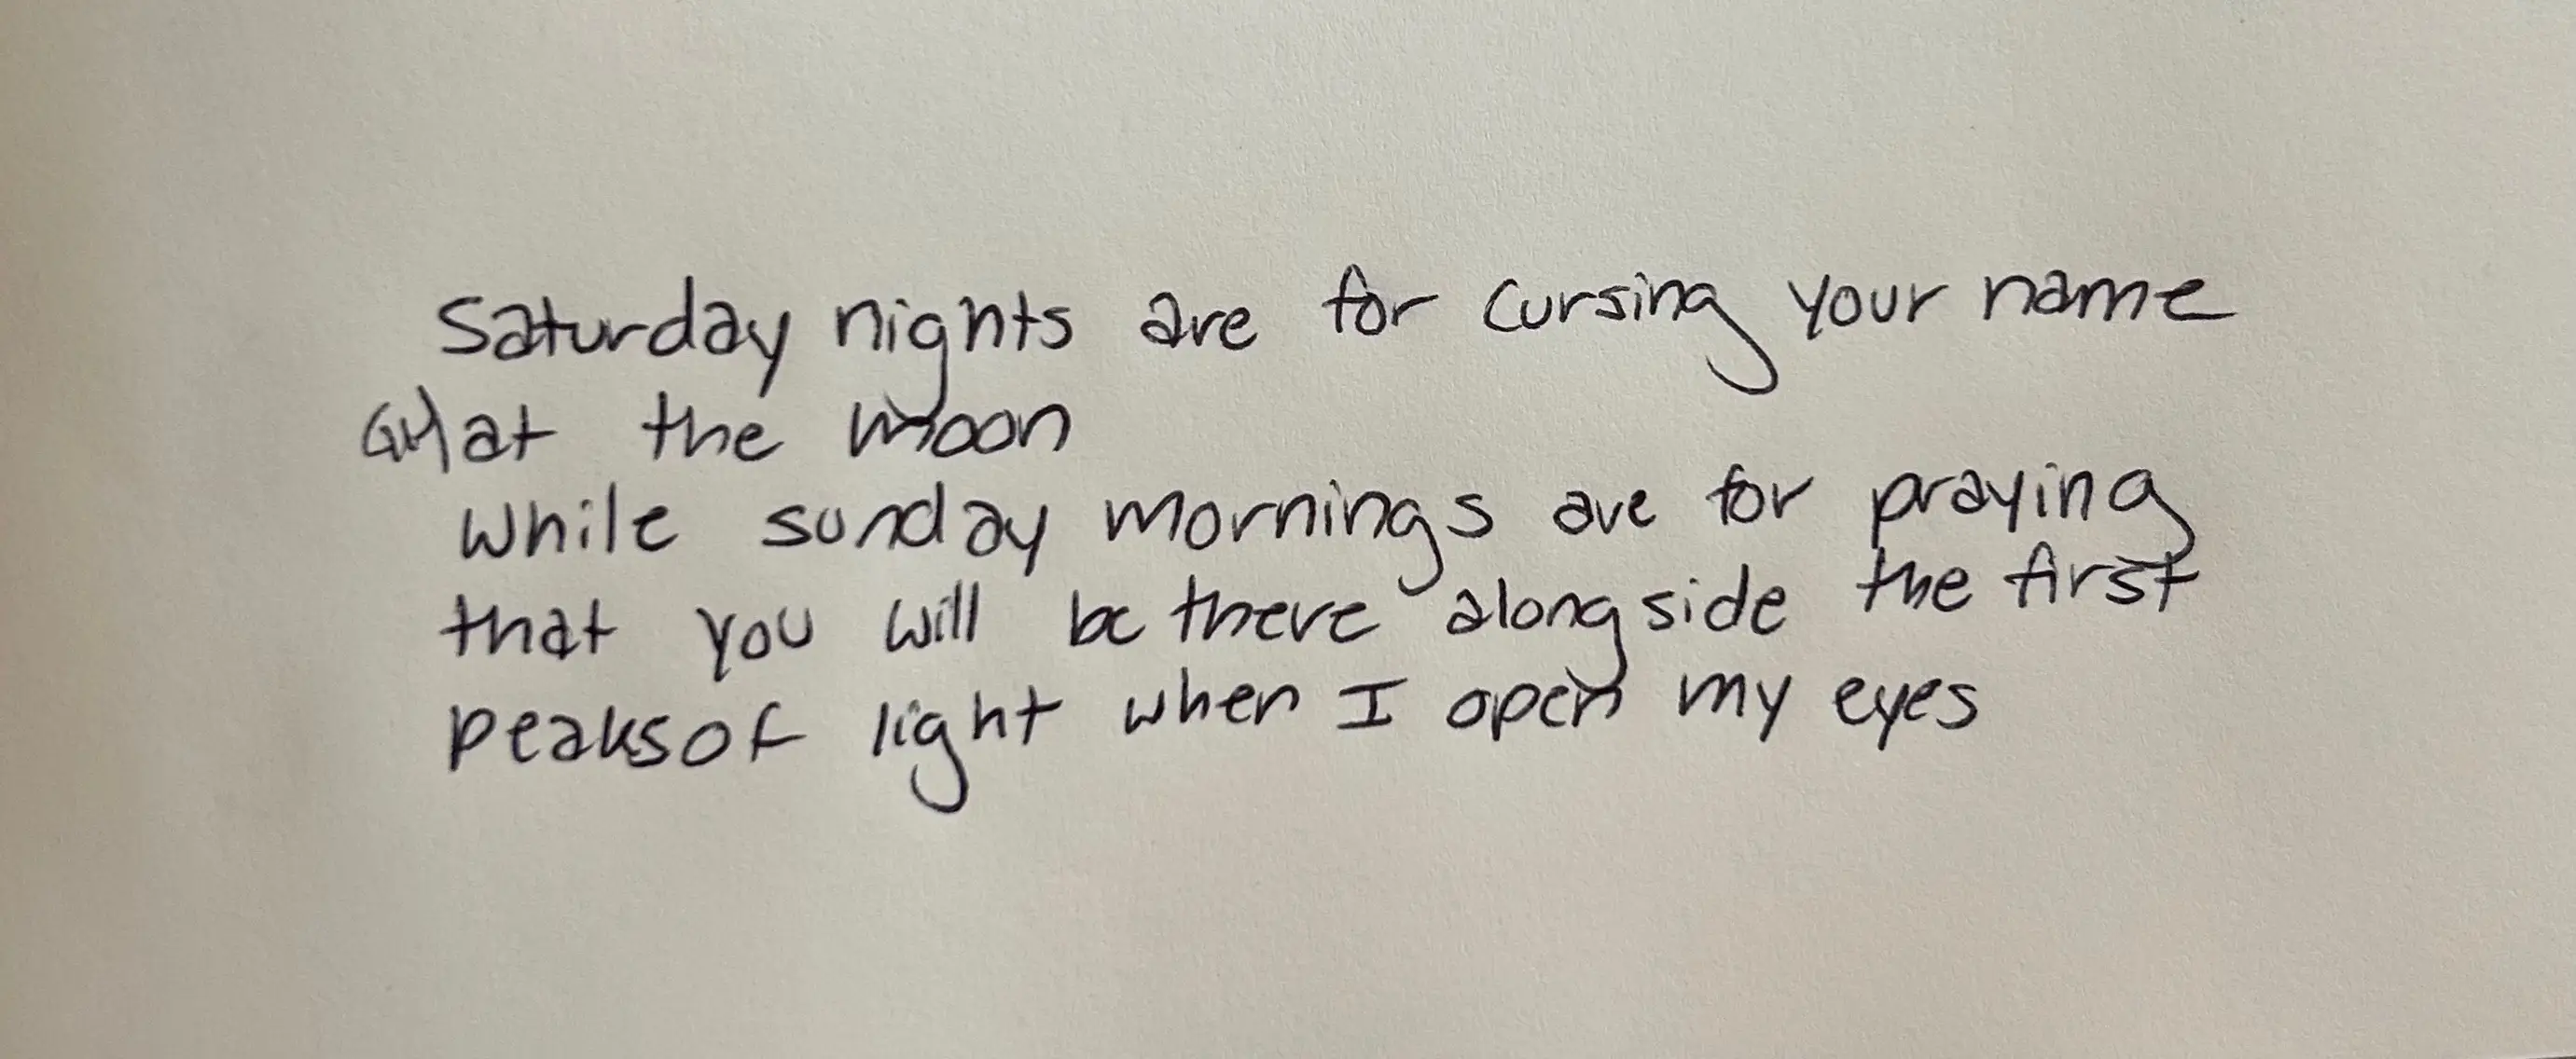 Saturday nights are for cursing your name
at the moon
while sunday mornings are for praying
that you will be there alongside the first
peaks of light when I open my eyes